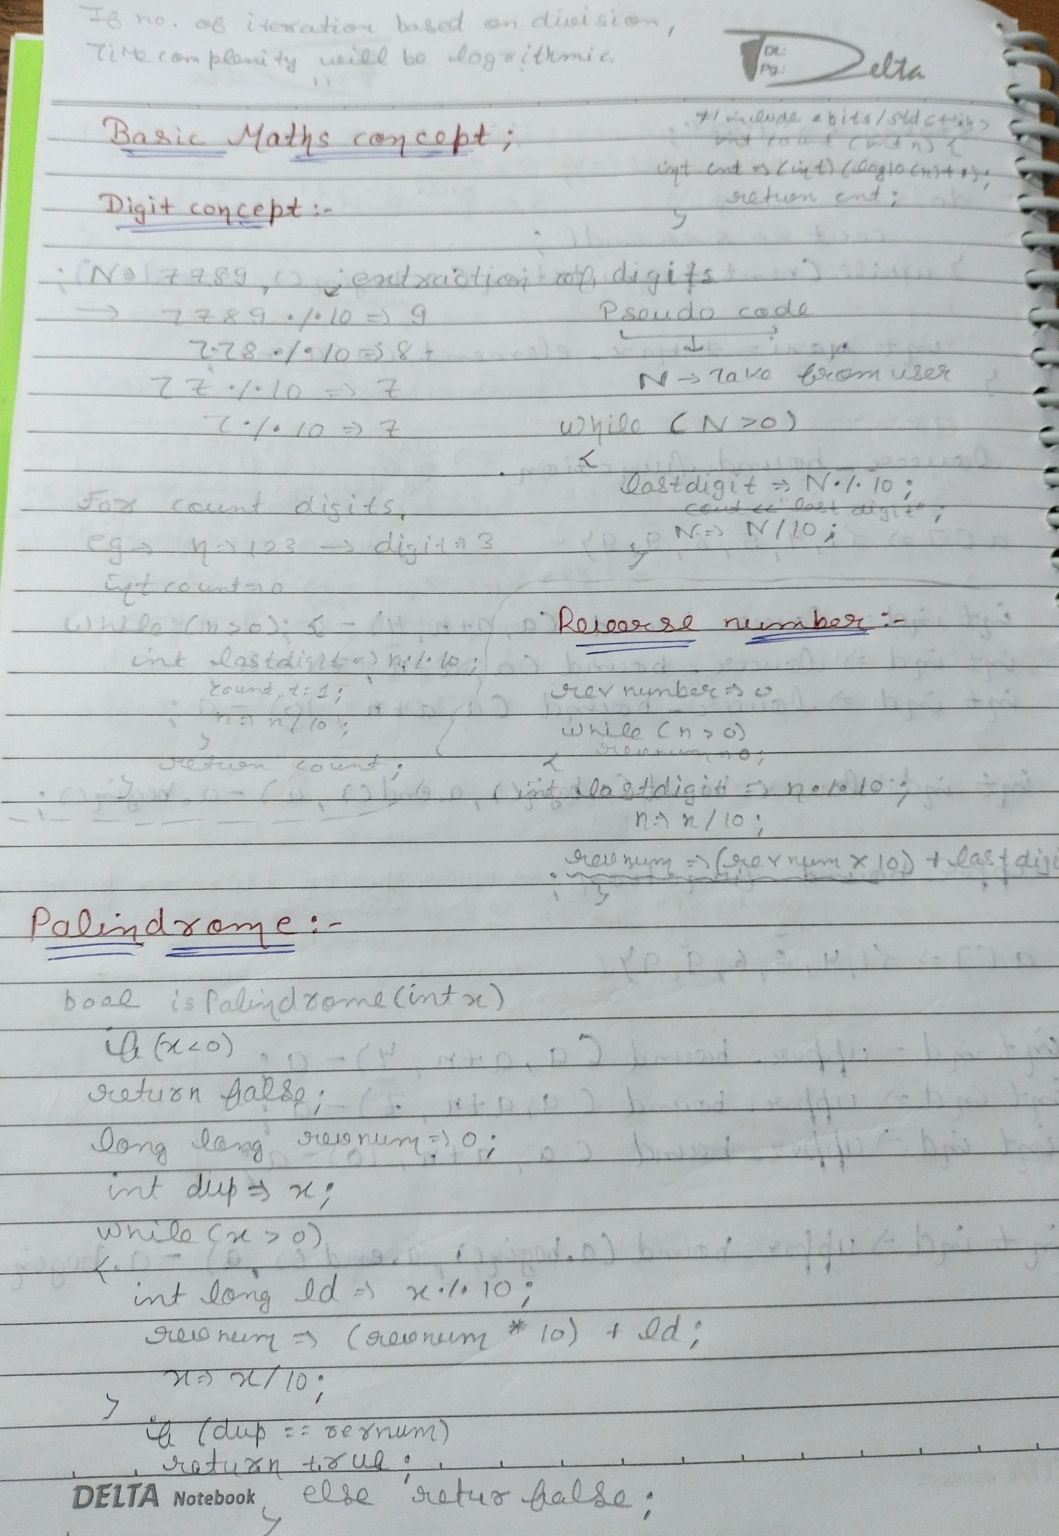 If no. of iteration based on division,
Time complexity will be logarithmic.
Dt.:
Pg.:
Delta
# include <bits/stdc++.h>
int count (int n) {
int cnt => (int) (log10(n)+1);
return cnt;
}
Basic Maths concept;
Digit concept:-
N=> 7789, ; extraction of digits
-> 7789 % 10 => 9
778 % 10 => 8
77 % 10 => 7
7 % 10 => 7
Pseudo code
N -> Take from user
while (N > 0)
{
lastdigit => N % 10;
cout << "last digit";
N => N/10;
}
For count digits,
eg -> n => 123 -> digit => 3
int count => 0
while (n>0); {
int lastdigit => n % 10;
count += 1;
n => n/10;
}
return count;
}
Reverse number:-
rev number => 0
while (n > 0)
{
int lastdigit => n % 10;
n => n/10;
revnum => (revnum x 10) + lastdigi
}
Palindrome:-
bool isPalindrome(int x)
if (x<0)
return false;
long long revnum => 0;
int dup => x;
while (x > 0)
{
int long ld => x % 10;
revnum => (revnum * 10) + ld;
x => x/10;
}
if (dup == revnum)
return true;
else retur false;
}
DELTA Notebook